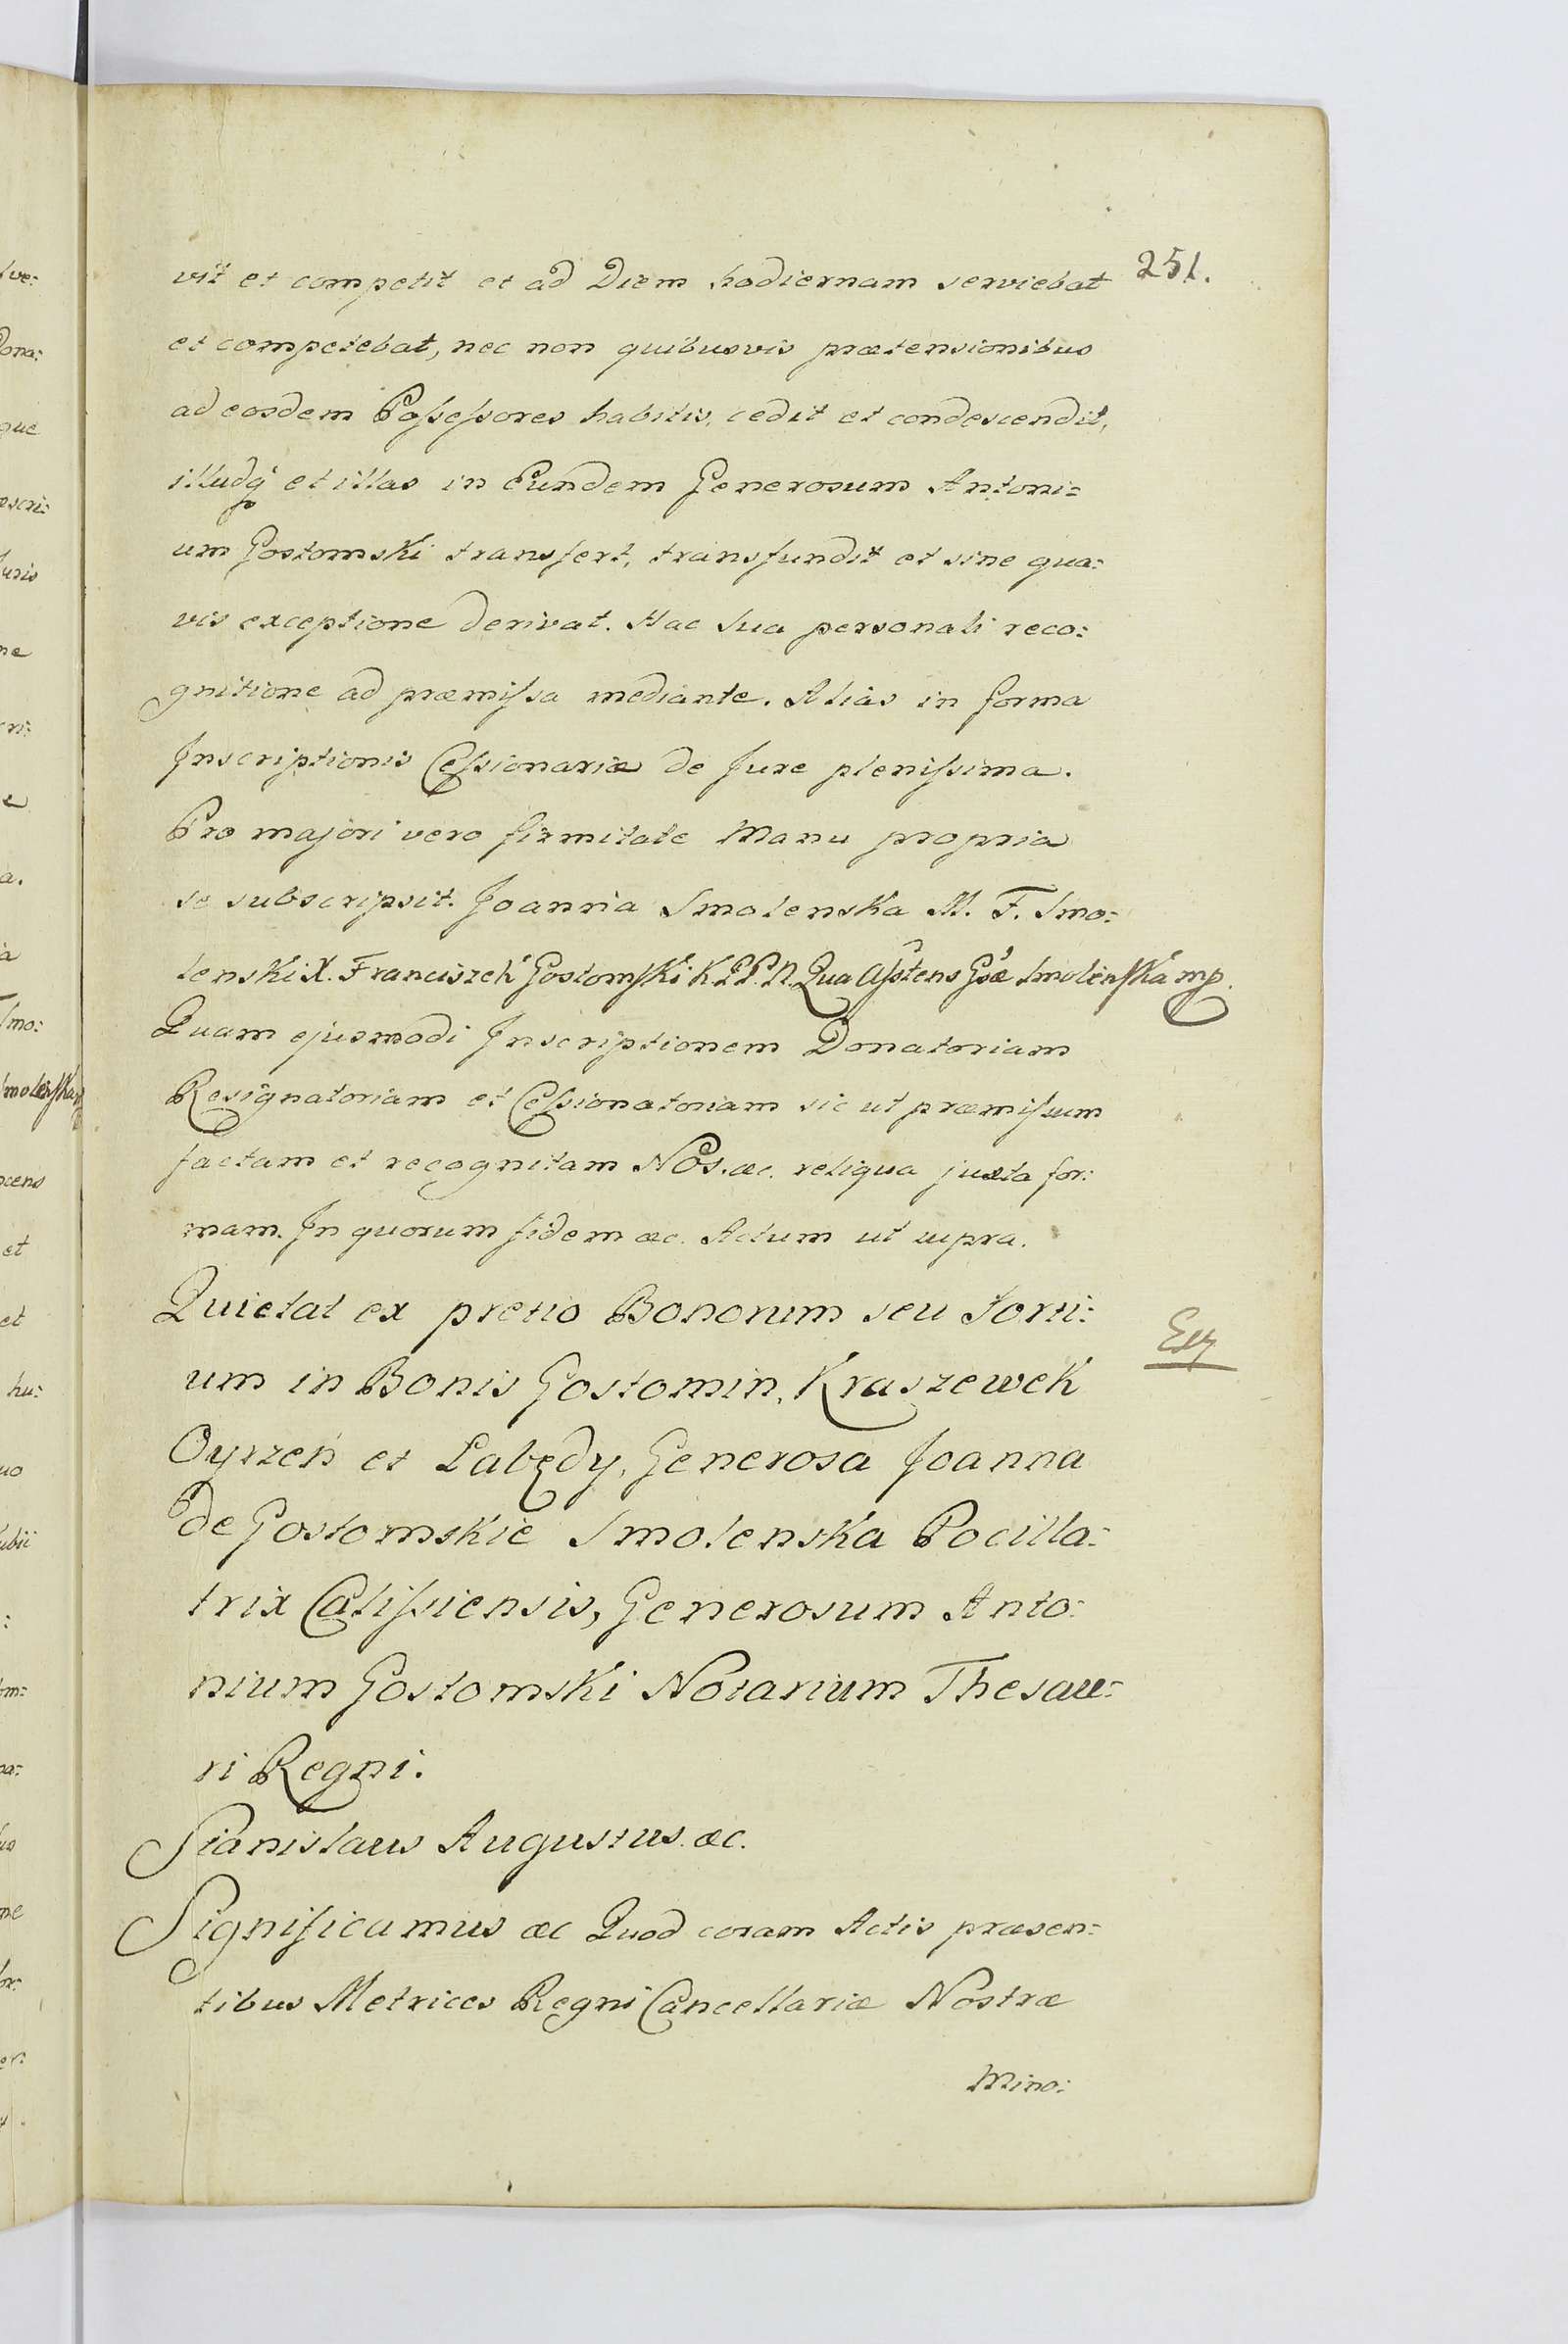 251.
vit et competit et ad Diem hodiernam serviebat
et competebat, nec non quibusvis prætensionibus
ad eosdem Poſseſsores habitis, cedit et condescendit,
illudq́ et illas in Eundem Generosum Antoni=
um Gostomski transfert, transfundit et sine qua:
vis exceptione derivat. Hac sua personali reco:
gnitione ad præmiſsa mediante. Alias in forma
Inscriptionis Ceſsionariæ de Jure pleniſsima.
Pro majori vero firmitate Manu propria
se subscripsit. Joanna Smolenska M. F. Smo:
lenski X. Franciszek Gostomſki K. P. P. N. Qua Aſstens Gsæ Smolenſka mp.
Quam ejusmodi Inscriptionem Donatoriam
Resignatoriam et Ceſsionatoriam sic ut præmiſsum
factam et recognitam Nos. æc. reliqua juxta for:
mam. In quorum fidem æc. Actum ut supra.
Quietat ex pretio Bonorum seu Sorti:
um in Bonis Gostomin, Kraszewek
Oyrzeń et Łabędy, Generosa Joanna
de Gostomskie Smolenska Pocilla:
trix Caliſsiensis, Generosum Anto:
nium Gostomski Notarium Thesau:
ri Regni.
Stanislaus Augustus. æc.
Significamus æc Quod coram Actis præsen:
tibus Metrices Regni Cancellariæ Nostræ
Mino: